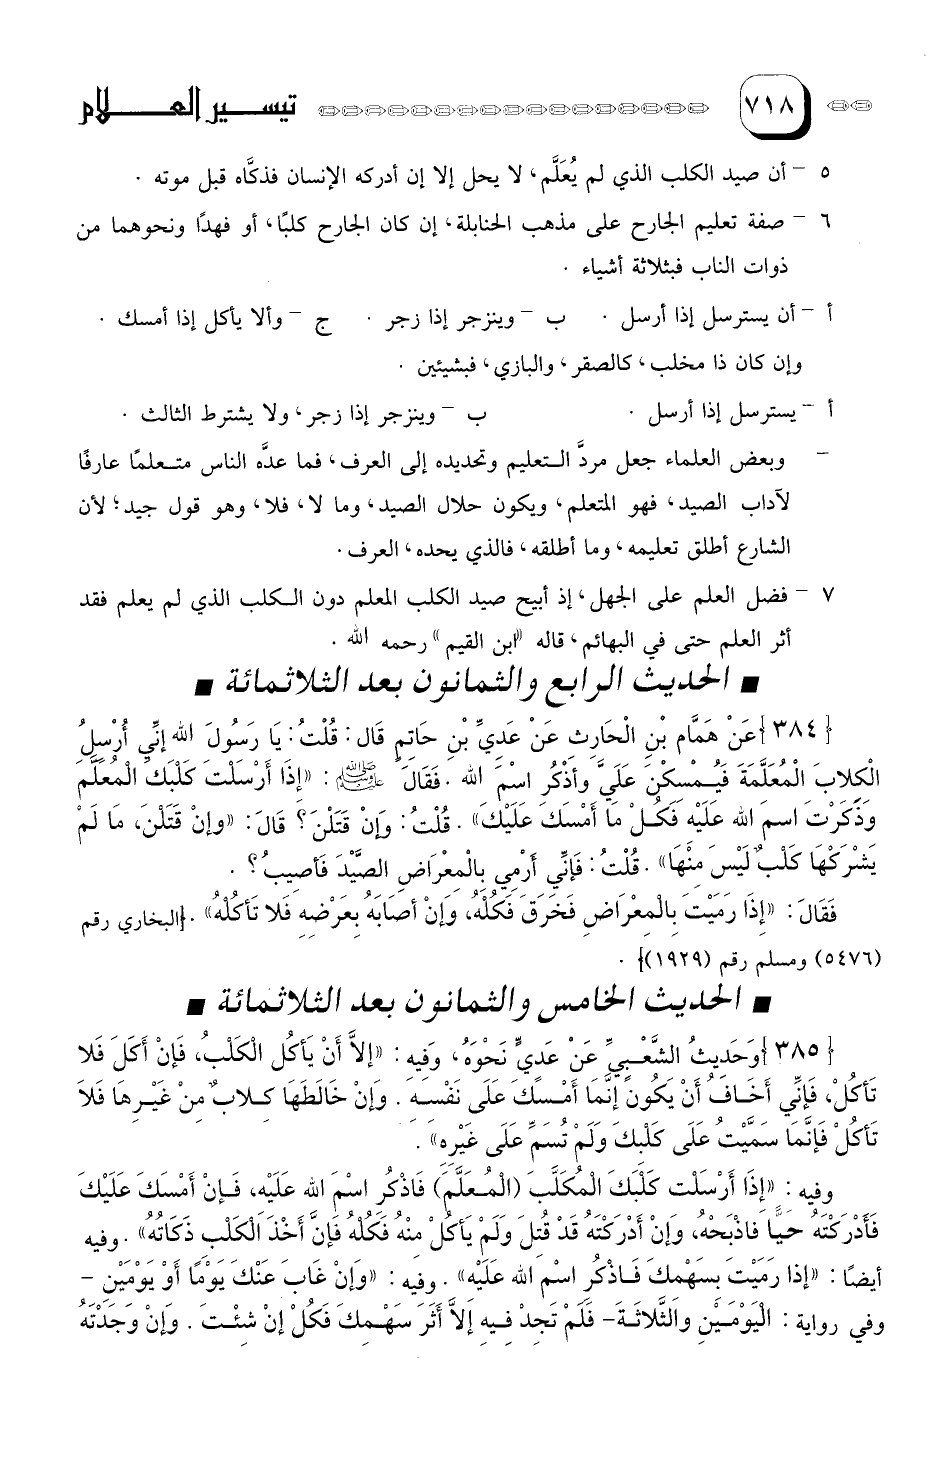 ٧١٨ تيسير العلام
٥ – أن صيد الكلب الذي لم يُعَلَّم، لا يحل إلا إن أدركه الإنسان فذكَّاه قبل موته .
٦ – صفة تعليم الجارح على مذهب الحنابلة، إن كان الجارح كلبًا، أو فهدًا ونحوهما من
ذوات الناب فبثلاثة أشياء .
أ – أن يسترسل إذا أرسل . ب – وينزجر إذا زجر . ج – وألا يأكل إذا أمسك .
وإن كان ذا مخلب، كالصقر، والبازي، فبشيئين .
أ – يسترسل إذا أرسل . ب – وينزجر إذا زجر، ولا يشترط الثالث .
– وبعض العلماء جعل مردَّ التعليم وتحديده إلى العرف، فما عدَّه الناس متعلمًا عارفًا
لآداب الصيد، فهو المتعلم، ويكون حلال الصيد، وما لا، فلا، وهو قول جيد؛ لأن
الشارع أطلق تعليمه، وما أطلقه، فالذي يحده، العرف.
٧ – فضل العلم على الجهل، إذ أبيح صيد الكلب المعلم دون الكلب الذي لم يعلم فقد
أثر العلم حتى في البهائم، قاله "ابن القيم" رحمه الله .
■ الحديث الرابع والثمانون بعد الثلاثمائة ■
{٣٨٤}عَنْ هَمَّامِ بْنِ الْحَارِثِ عَنْ عَدِيِّ بْنِ حَاتِمٍ قَال: قُلْتُ: يَا رَسُولَ الله إنِّي أُرْسِلُ
الْكِلابَ الْمُعَلَّمَةَ فَيُمْسِكْنَ عَلَيَّ وأَذْكُر اسْمَ الله .فَقَالَ ﷺ : «إذَا أَرْسَلْتَ كَلْبَكَ الْمُعَلَّمَ
وَذَكَرْتَ اسمَ الله عَلَيْه فَكُلْ مَا أَمْسَكَ عَلَيْكَ» . قُلْتُ: وَإنْ قَتَلْنَ؟ قَالَ: «وإنْ قَتَلْنَ، مَا لَمْ
يَشْرَكْهَا كَلْبٌ لَيْسَ مِنْهَا» .قُلْتُ: فَإنِّي أَرْمِي بالْمعْرَاضِ الصَّيْدَ فَأصيبُ؟ .
فَقَالَ: «إذَا رَمَيْتَ بِالْمعْرَاضِ فَخَرَقَ فَكُلْهُ، وَإنْ أصَابَهُ بعَرْضِه فَلا تَأكُلْهُ» .{البخاري رقم
(٥٤٧٦) ومسلم رقم (١٩٢٩)} .
■ الحديث الخامس والثمانون بعد الثلاثمائة ■
{٣٨٥}وَحَديثُ الشَّعْبيِّ عَنْ عَديٍّ نَحْوَهُ، وَفيه: «إلاَّ أَنْ يَأكُلَ الكَلْبُ، فَإنْ أكَلَ فَلا
تَأكُلْ، فَإنِّي أَخَافُ أَنْ يَكُونَ إنَّمَا أَمْسَكَ عَلَى نَفْسه . وَإنْ خَالَطَهَا كلابٌ منْ غَيْرهَا فَلاَ
تَأكُلْ فَإنَّمَا سَمَّيْتُ عَلَى كَلْبكَ وَلَمْ تُسَمِّ عَلَى غَيْره» .
وفيه: «إذَا أَرْسَلْتَ كَلْبَكَ المُكَلَّبَ (المُعَلَّمَ) فَاذْكُر اسْمَ الله عَلَيْه، فَإنْ أمْسَكَ عَلَيْكَ
فَأدْرَكْتَهُ حَيًّا فَاذْبَحْهُ، وَإنْ أدْرَكْتَهُ قَدْ قُتلَ وَلَمْ يَأكُلْ منْهُ فَكُلْهُ فَإنَّ أَخْذَ الْكَلْبِ ذَكَاتُهُ» . وفيه
أيضًا: «إذا رَمَيْتَ بسَهْمكَ فَاذْكُر اسْمَ الله عَلَيْه» . وفيه: «وَإنْ غَابَ عَنْكَ يَوْمًا أَوْ يَوْمَيْن –
وفي رواية: الْيَوْمَيْنِ والثَّلاثَةَ- فَلَمْ تَجدْ فيه إلاَّ أَثَرَ سَهْمكَ فَكُلْ إنْ شئْتَ . وَإنْ وَجَدْتَهُ